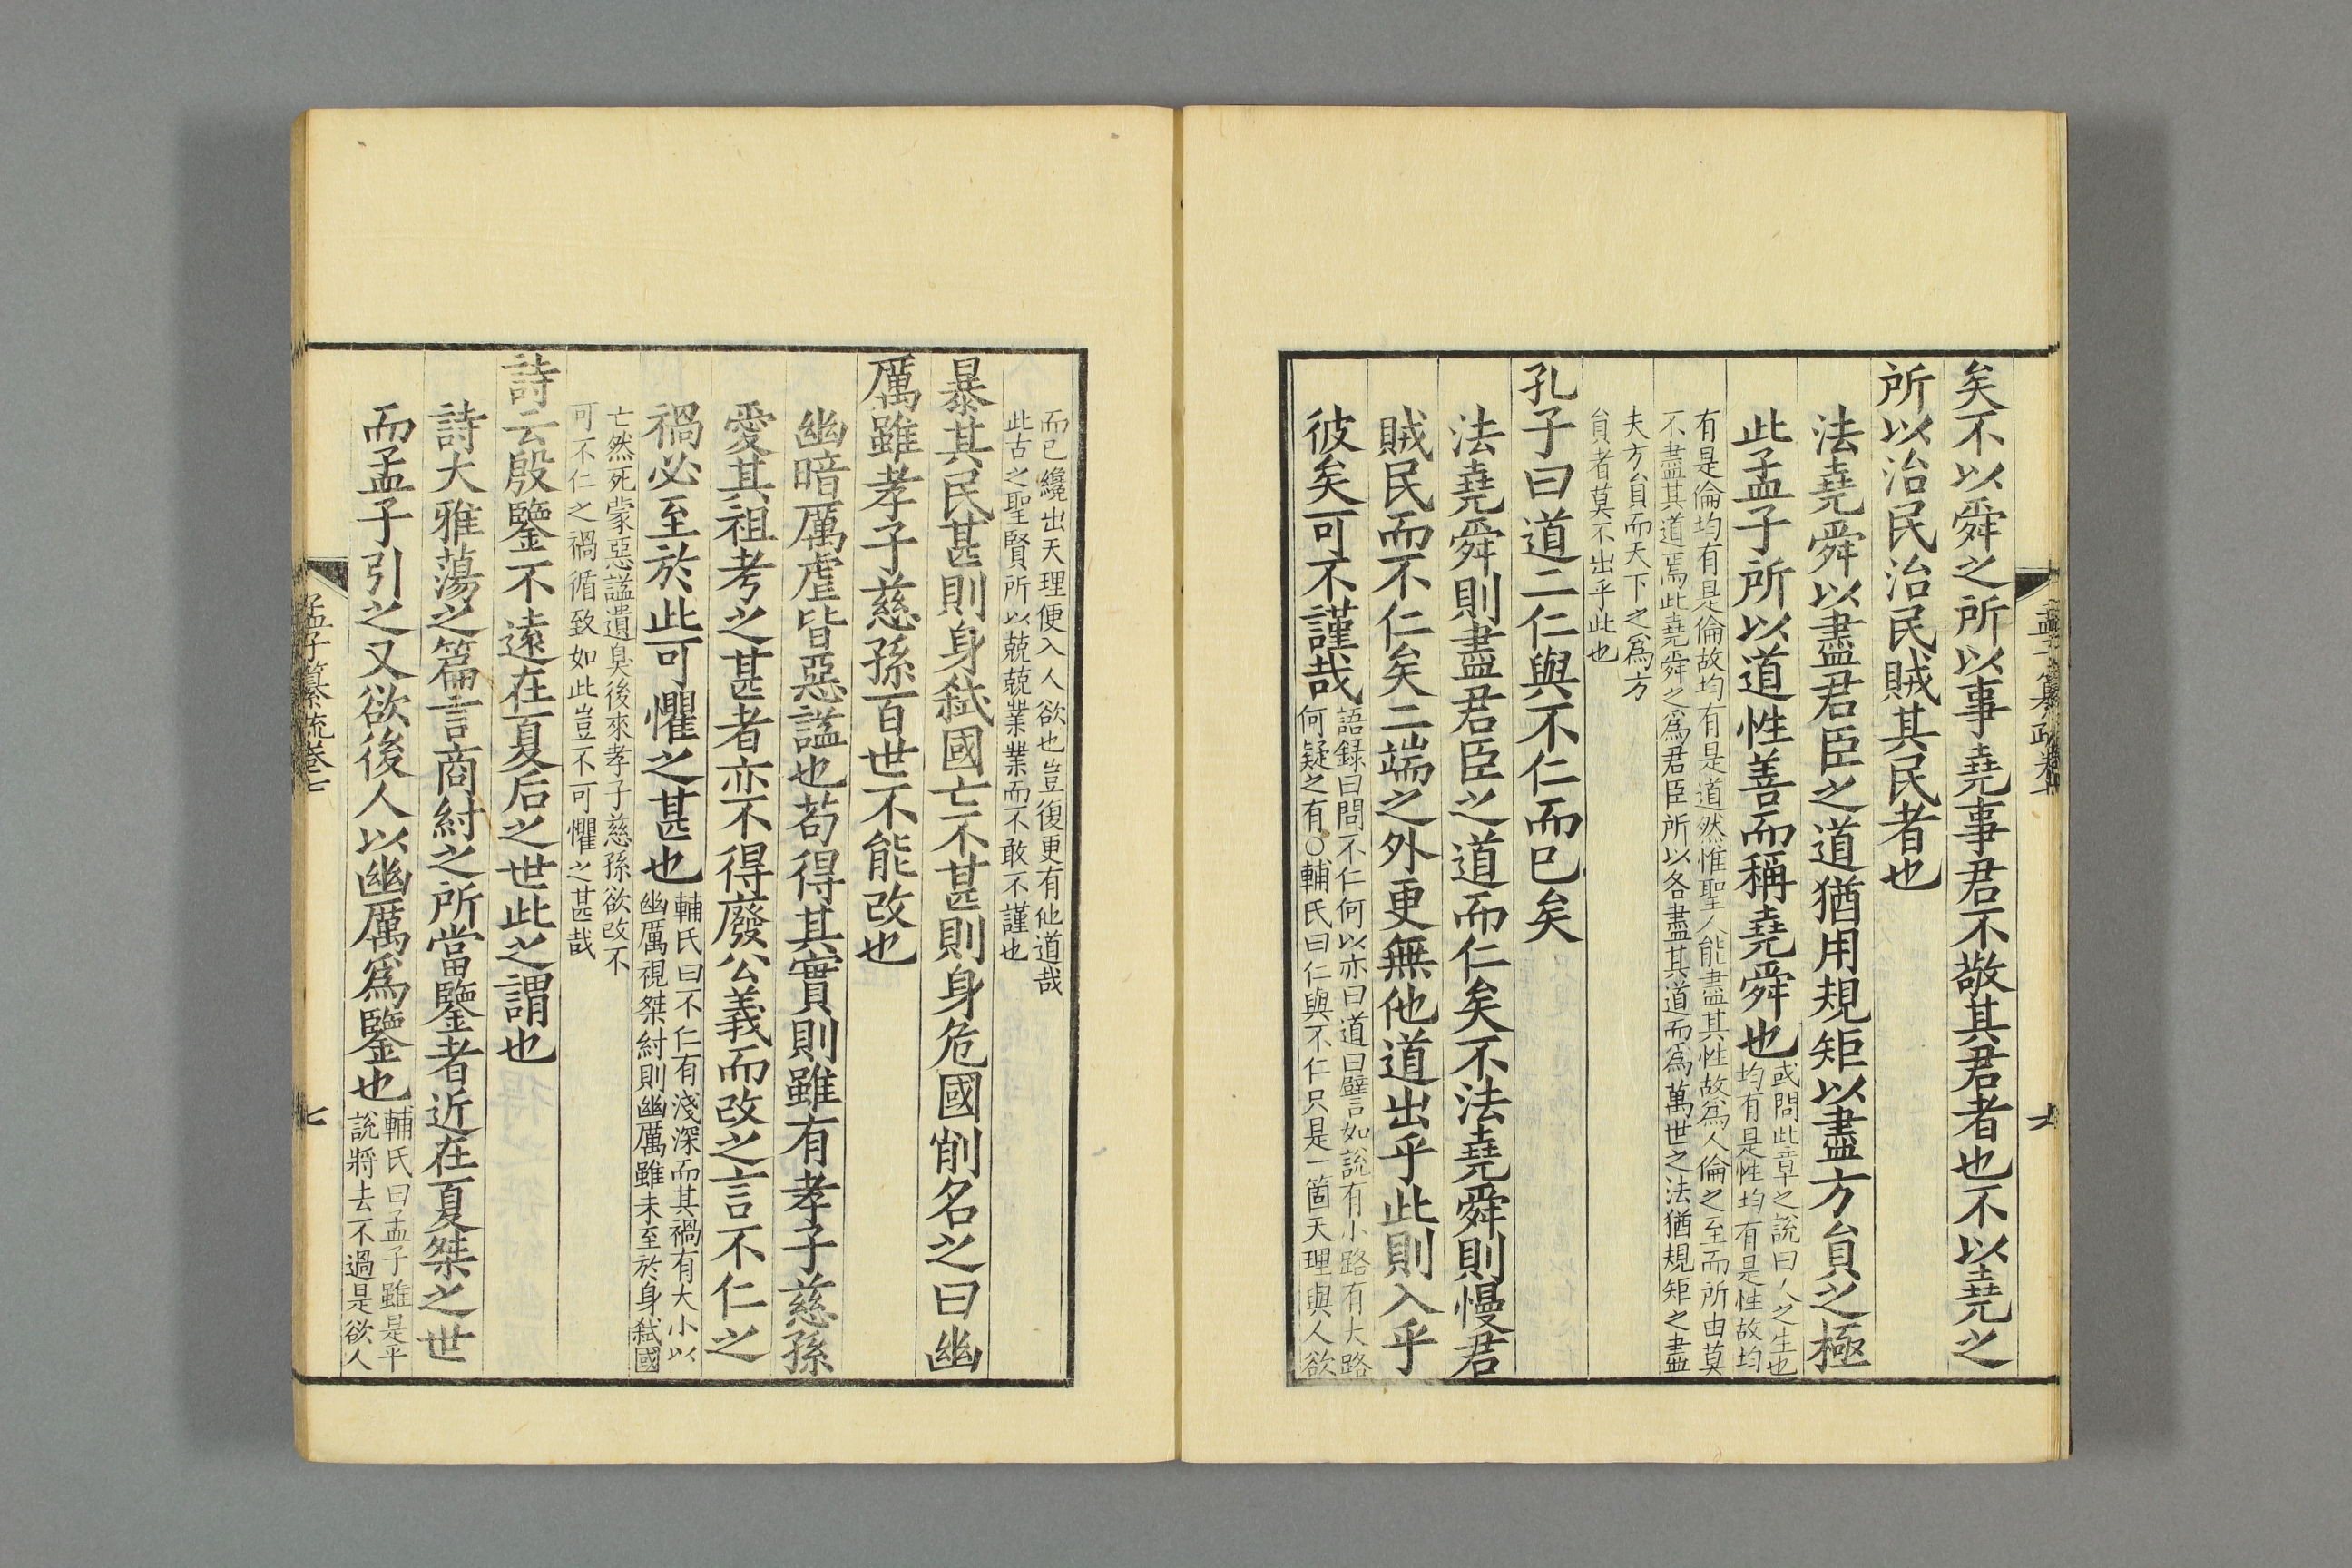 孟子纂疏卷七
六
矣不以舜之所以事堯事君不敬其君者也不以堯之
所以治民治民賊其民者也
法堯舜以盡君臣之道猶用規矩以盡方員之極
此孟子所以道性善而稱堯舜也
或問此章之說曰人之生也
均有是性均有是性故均
有是倫均有是倫故均有是道然惟聖人能盡其性故爲人倫之至而所由莫
不盡其道焉此堯舜之爲君臣所以各盡其道而爲萬世之法猶規矩之盡
夫方員而天下之爲方
員者莫不出乎此也
孔子曰道二仁與不仁而已矣
法堯舜則盡君臣之道而仁矣不法堯舜則慢君
賊民而不仁矣二端之外更無他道出乎此則入乎
彼矣可不謹哉
語録曰問不仁何以亦曰道曰譬如說有小路有大路
何疑之有○輔氏曰仁與不仁只是一箇天理與人欲
而已纔出天理便入人欲也豈復更有他道哉
此古之聖賢所以兢兢業業而不敢不謹也
暴其民甚則身弑國亡不甚則身危國削名之曰幽
厲雖孝子慈孫百世不能改也
幽暗厲虐皆惡謚也苟得其實則雖有孝子慈孫
愛其祖考之甚者亦不得廢公義而改之言不仁之
禍必至於此可懼之甚也
輔氏曰不仁有淺深而其禍有大小以
幽厲視桀紂則幽厲雖未至於身弑國
亡然死蒙惡謚遺臭後來孝子慈孫欲改不
可不仁之禍循致如此豈不可懼之甚哉
詩云殷鑒不遠在夏后之世此之謂也
詩大雅蕩之篇言商紂之所當鑒者近在夏桀之世
而孟子引之又欲後人以幽厲爲鑒也
輔氏曰孟子雖是平
說將去不過是欲人
孟子纂疏卷七
七